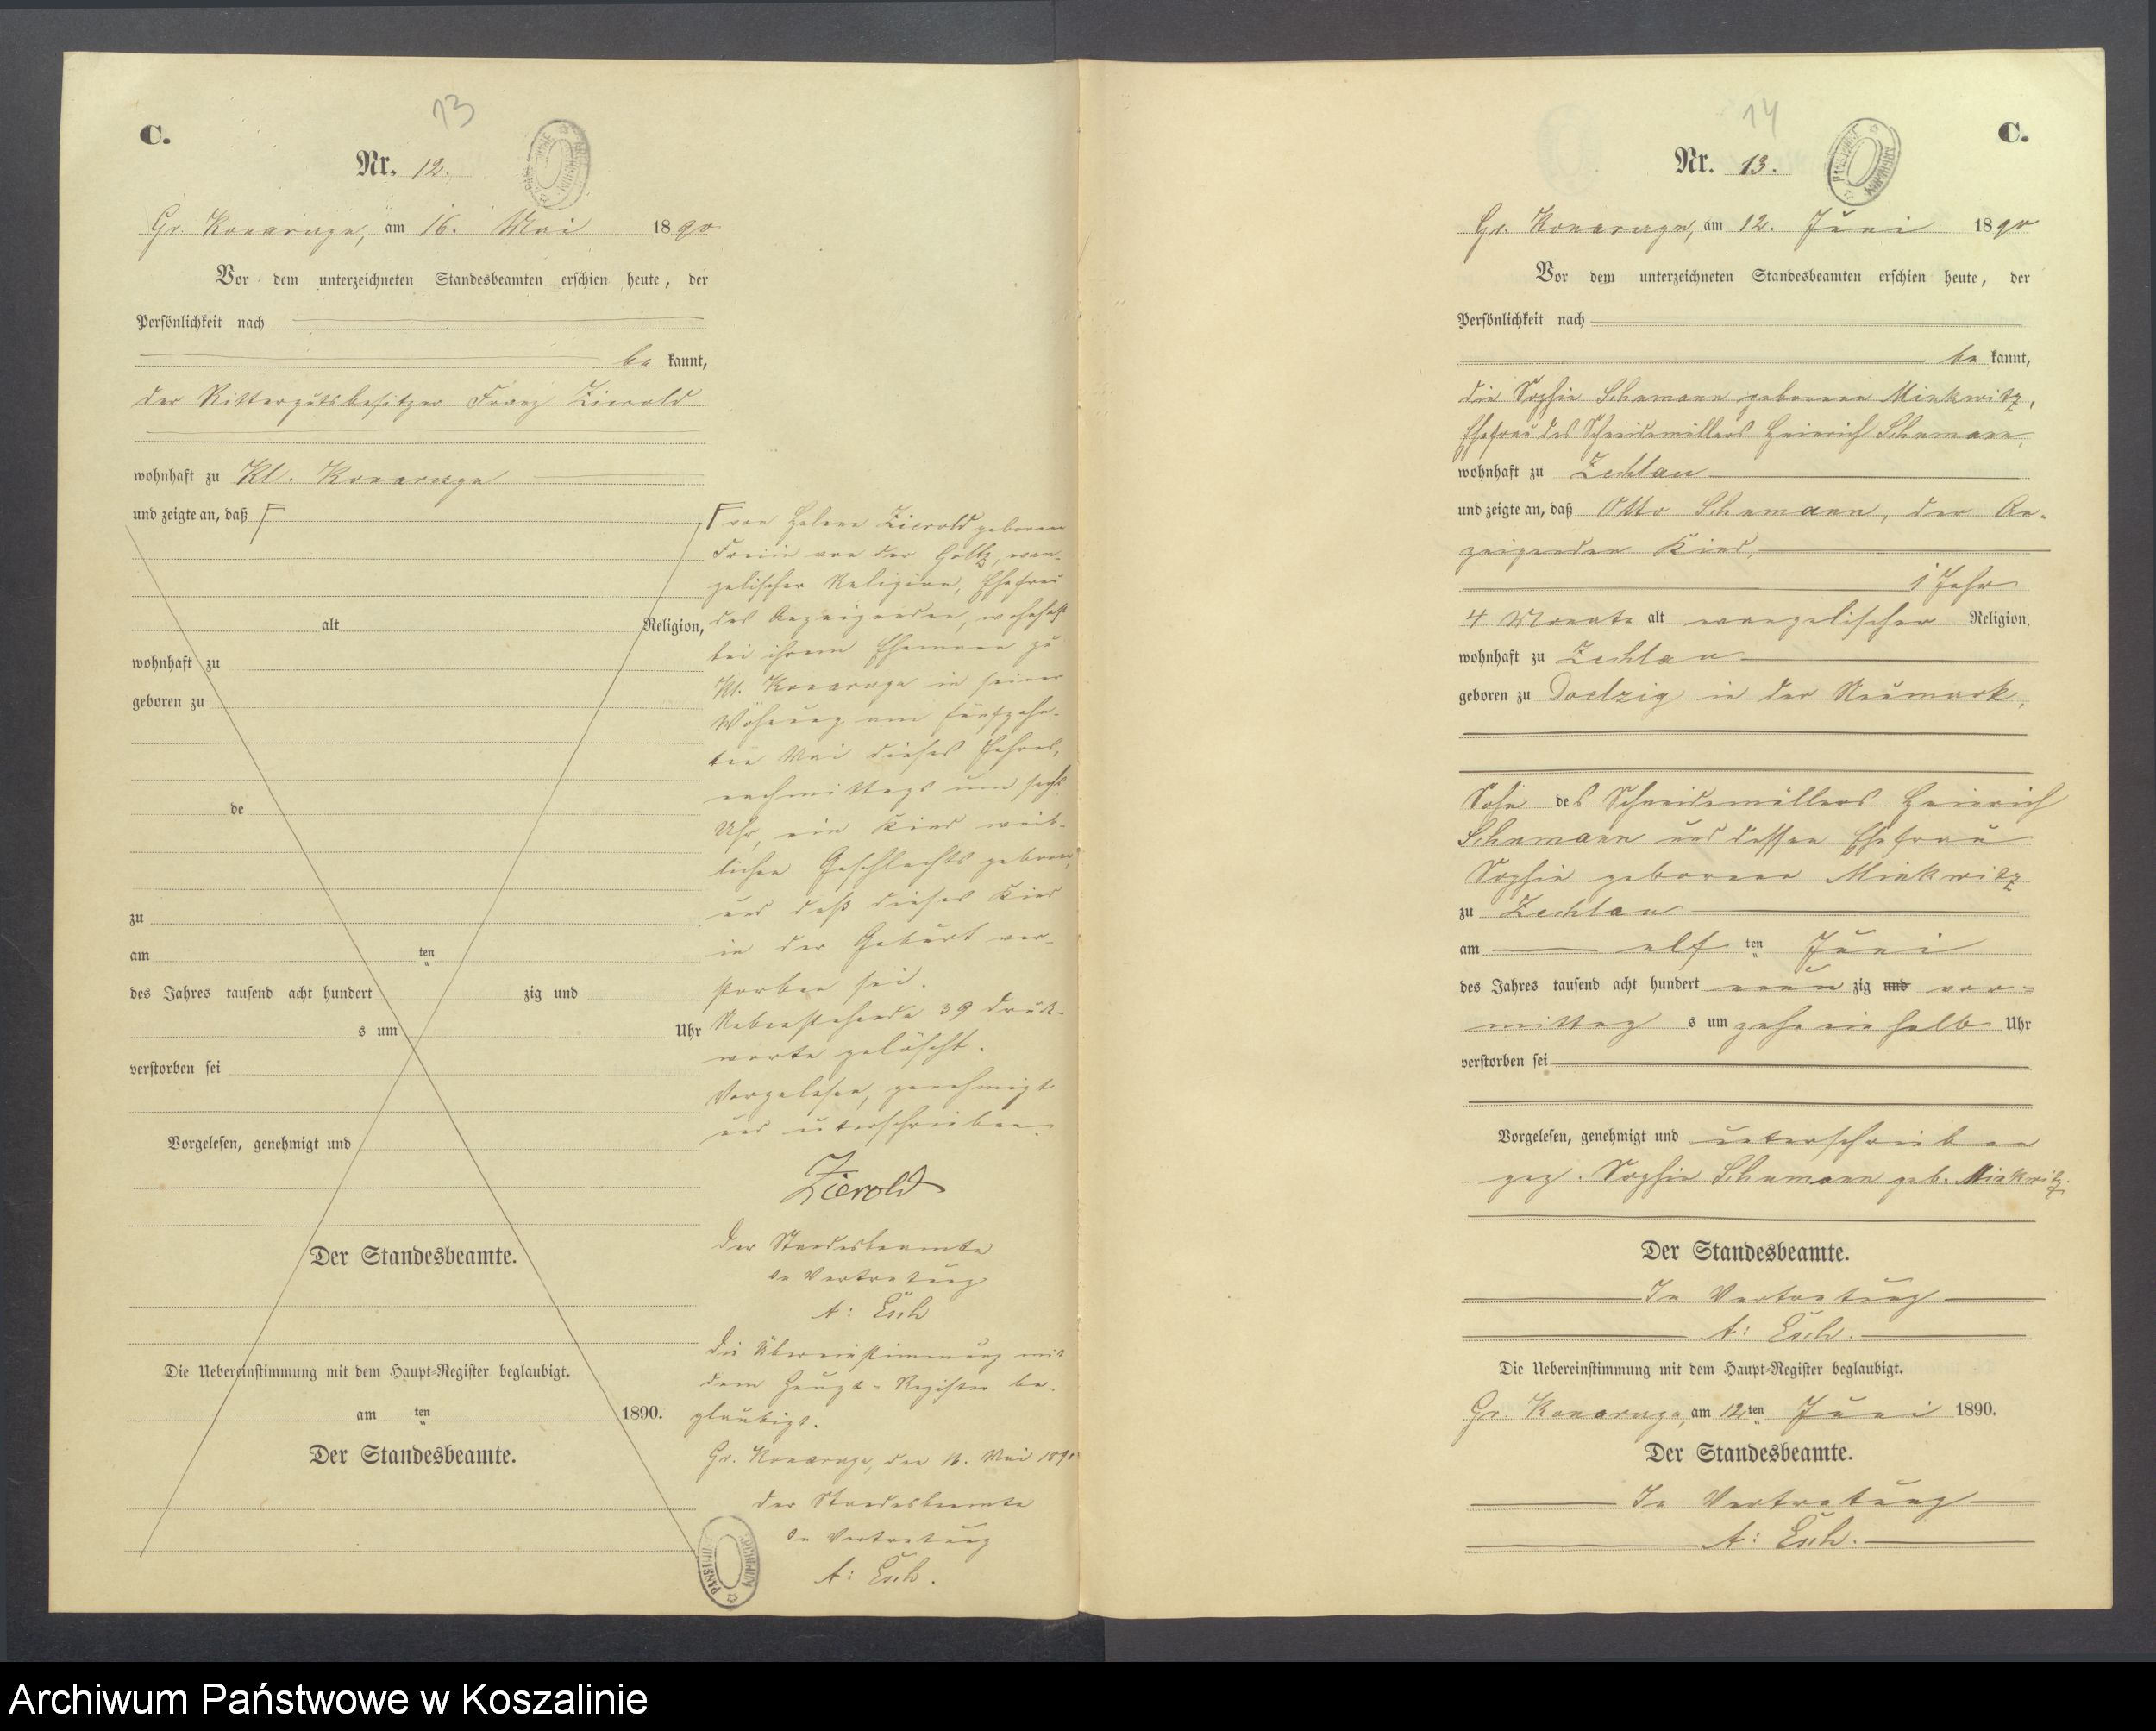 13
C.
Nr. 12.
Gr. Konarczyn, am 16. Mai 1890
Vor dem unterzeichneten Standesbeamten erschien heute, der
Persönlichkeit nach
be kannt,
der Rittergutsbesitzer Franz Zierold
wohnhaft zu Kl. Konarczyn
und zeigte an, daß
alt Religion,
wohnhaft zu
geboren zu
de
zu
am ten
des Jahres tausend acht hundert zig und
s um Uhr
verstorben sei
Vorgelesen, genehmigt und
Der Standesbeamte.
Die Uebereinstimmung mit dem Haupt-Register beglaubigt.
am ten 1890.
Der Standesbeamte.
von Helene Zierold geboren
Freiin von der Goltz, evan-
gelischer Religion, Ehefrau
des Anzeigenden, wohnhaft
bei ihrem Ehemann zu
Kl. Konarczyn in seiner
Wohnung am fünfzehn-
ten Mai dieses Jahres,
nachmittags um sechs
Uhr, ein Kind weib-
lichen Geschlechts geboren,
und daß dieses Kind
in der Geburt ver-
storben sei.
Nebenstehende 39 Druck-
worte gelöscht.
Vorgelesen, genehmigt
und unterschrieben.
Zierold
Der Standesbeamte
In Vertretung
A: Esch
Die Übereinstimmung mit
dem Haupt-Register be-
glaubigt.
Gr. Konarczyn, den 16. Mai 1890
Der Standesbeamte
In Vertretung
A: Esch.
14
C.
Nr. 13.
Gr. Konarczyn, am 12. Juni 1890
Vor dem unterzeichneten Standesbeamten erschien heute, der
Persönlichkeit nach
be kannt,
die Sophie Schumann geborene Minkwitz,
Ehefrau des Schneidemüllers Heinrich Schumann,
wohnhaft zu Zechlau
und zeigte an, daß Otto Schumann, der An-
zeigenden Kind,
1 Jahr
4 Monate alt evangelischer Religion,
wohnhaft zu Zechlau
geboren zu Doelzig in der Neumark,
Sohn des Schneidemüllers Heinrich
Schumann und dessen Ehefrau
Sophie geborene Minkwitz
zu Zechlau
am elf ten Juni
des Jahres tausend acht hundert neun zig und vor-
mittag s um zehn ein halb Uhr
verstorben sei
Vorgelesen, genehmigt und unterschrieben
gez. Sophie Schumann geb. Minkwitz.
Der Standesbeamte.
In Vertretung
A: Esch.
Die Uebereinstimmung mit dem Haupt-Register beglaubigt.
Gr. Konarczyn, am 12 ten Juni 1890.
Der Standesbeamte.
In Vertretung
A: Esch.
Archiwum Państwowe w Koszalinie